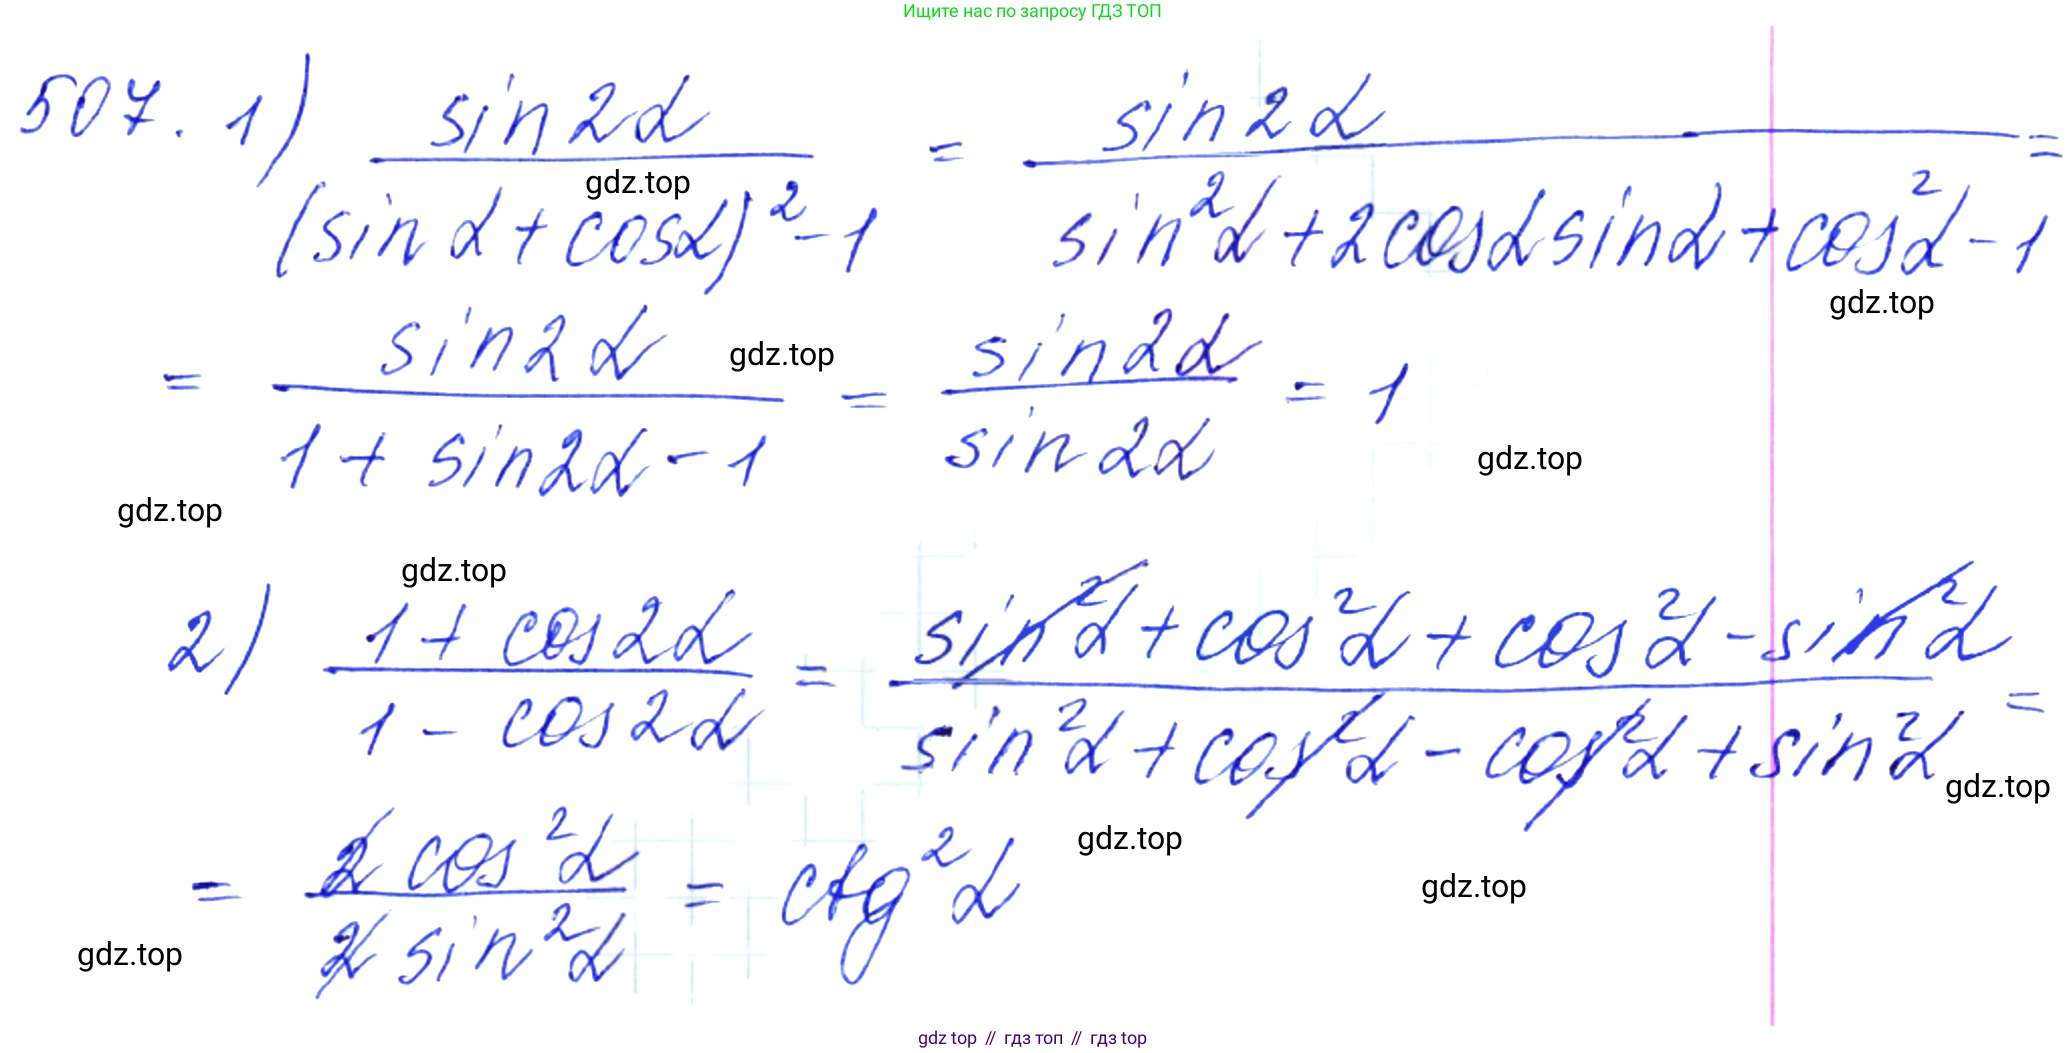 Ищите нас по запросу ГДЗ ТОП
507. 1) sin2α / (sinα + cosα)² - 1 = sin2α / sin²α + 2cosα sinα + cos²α - 1 =
gdz.top
gdz.top
= sin2α / 1 + sin2α - 1 = sin2α / sin2α = 1
gdz.top
gdz.top
gdz.top
gdz.top
2) 1 + cos2α / 1 - cos2α = sin²α + cos²α + cos²α - sin²α / sin²α + cos²α - cos²α + sin²α =
gdz.top
gdz.top
= 2cos²α / 2sin²α = ctg²α
gdz.top
gdz.top
gdz top // гдз топ // гдз top